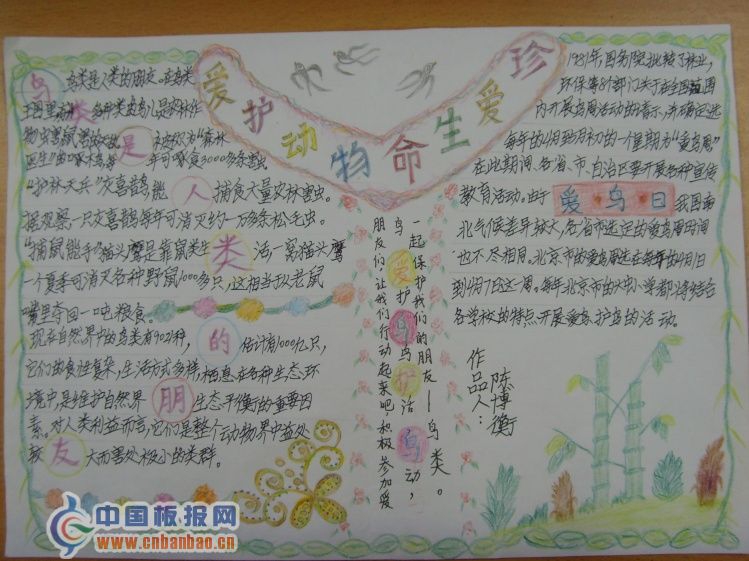 爱护动物命生爱珍
鸟类是人类的朋友
鸟类是人类的朋友.在鸟类
王国里有
多种类鸟儿是农林作
物虫害鼠害的
被称为“森林
医生”的啄木鸟每
年可啄食3000多条害虫
“护林天兵”灰喜鹊能
捕食大量农林害虫。
据观察一只灰喜鹊每年可消灭约一万多条松毛虫。
“捕鼠能手”猫头鹰是靠鼠类生
活一窝猫头鹰
一个夏季可消灭各种野鼠1000多只,这相当于从老鼠
嘴里夺回一吨粮食。
现在自然界中的鸟类有9021种,
估计有1000亿只,
它们的食性复杂,生活方式多样,栖息在各种生态环
境中,是维护自然界
生态平衡的重要因
素。对人类利益而言,它们是整个动物界中益处
较
大而害处极小的类群。
一起保护我们的朋友—鸟类。
鸟爱护鸟护鸟活鸟动,
朋友们,让我们行动起来吧,积极参加爱
1981年,国务院批转了林业,
环保等8个部门关于在全国范围
内开展鸟周活动的请示,并确定选
每年的4月到5月初的一个星期为“爱鸟周”
在此期间,各省、市、自治区要开展各种宣传
教育活动。由于
爱·鸟·日
我国南
北气候差异较大,各省市选定的爱鸟周时间
也不尽相同。北京市的爱鸟周选在每年的4月1日
到4月7日这一周。每年北京市的大中小学都将结合
各学校的特点开展爱鸟、护鸟的活动。
作品人:
陈博衡
中国板报网
www.cnbanbao.cn